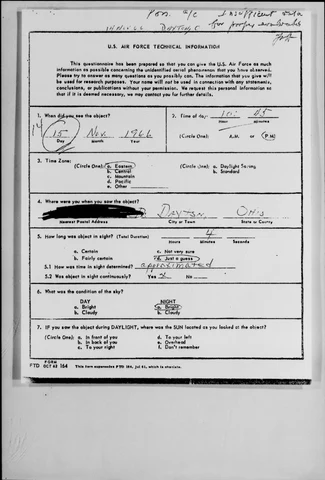 Pos. a/c Insufficient data
for proper evaluation
U.S. AIR FORCE TECHNICAL INFORMATION
This questionnaire has been prepared so that you can give the U.S. Air Force as much
information as possible concerning the unidentified aerial phenomenon that you have observed.
Please try to answer as many questions as you possibly can. The information that you give will
be used for research purposes. Your name will not be used in connection with any statements,
conclusions, or publications without your permission. We request this personal information so
that if it is deemed necessary, we may contact you for further details.
1. When did you see the object?
15 Nov 1966
Day Month Year
2. Time of day: 10: 45
Hour Minutes
(Circle One): A.M. or P.M.
3. Time Zone:
(Circle One): a. Eastern
b. Central
c. Mountain
d. Pacific
e. Other
(Circle One): a. Daylight Saving
b. Standard
4. Where were you when you saw the object?
Dayton Ohio
Nearest Postal Address City or Town State or County
5. How long was object in sight? (Total Duration) 4
Hours Minutes Seconds
a. Certain c. Not very sure
b. Fairly certain d. Just a guess
5.1 How was time in sight determined? approximated
5.2 Was object in sight continuously? Yes X No
6. What was the condition of the sky?
DAY NIGHT
a. Bright a. Bright
b. Cloudy b. Cloudy
7. IF you saw the object during DAYLIGHT, where was the SUN located as you looked at the object?
(Circle One): a. In front of you d. To your left
b. In back of you e. Overhead
c. To your right f. Don't remember
FORM
FTD OCT 62 164 This form supersedes FTD 164, Jul 61, which is obsolete.